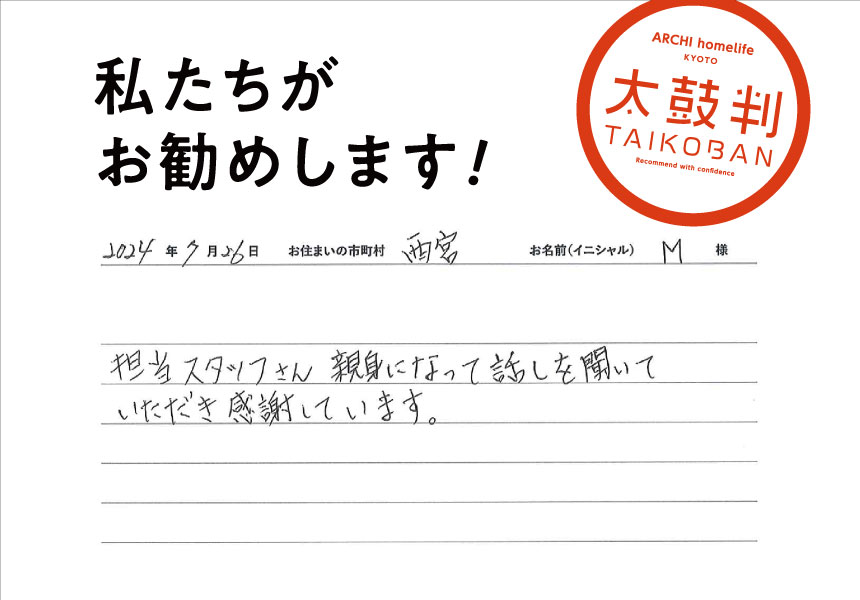 私たちが
お勧めします!
ARCHI homelife
KYOTO
太鼓判
TAIKOBAN
Recommend with confidence
2024年7月26日 お住まいの市町村 西宮 お名前(イニシャル) M 様
担当スタッフさん 親身になって話しを聞いて
いただき感謝しています。